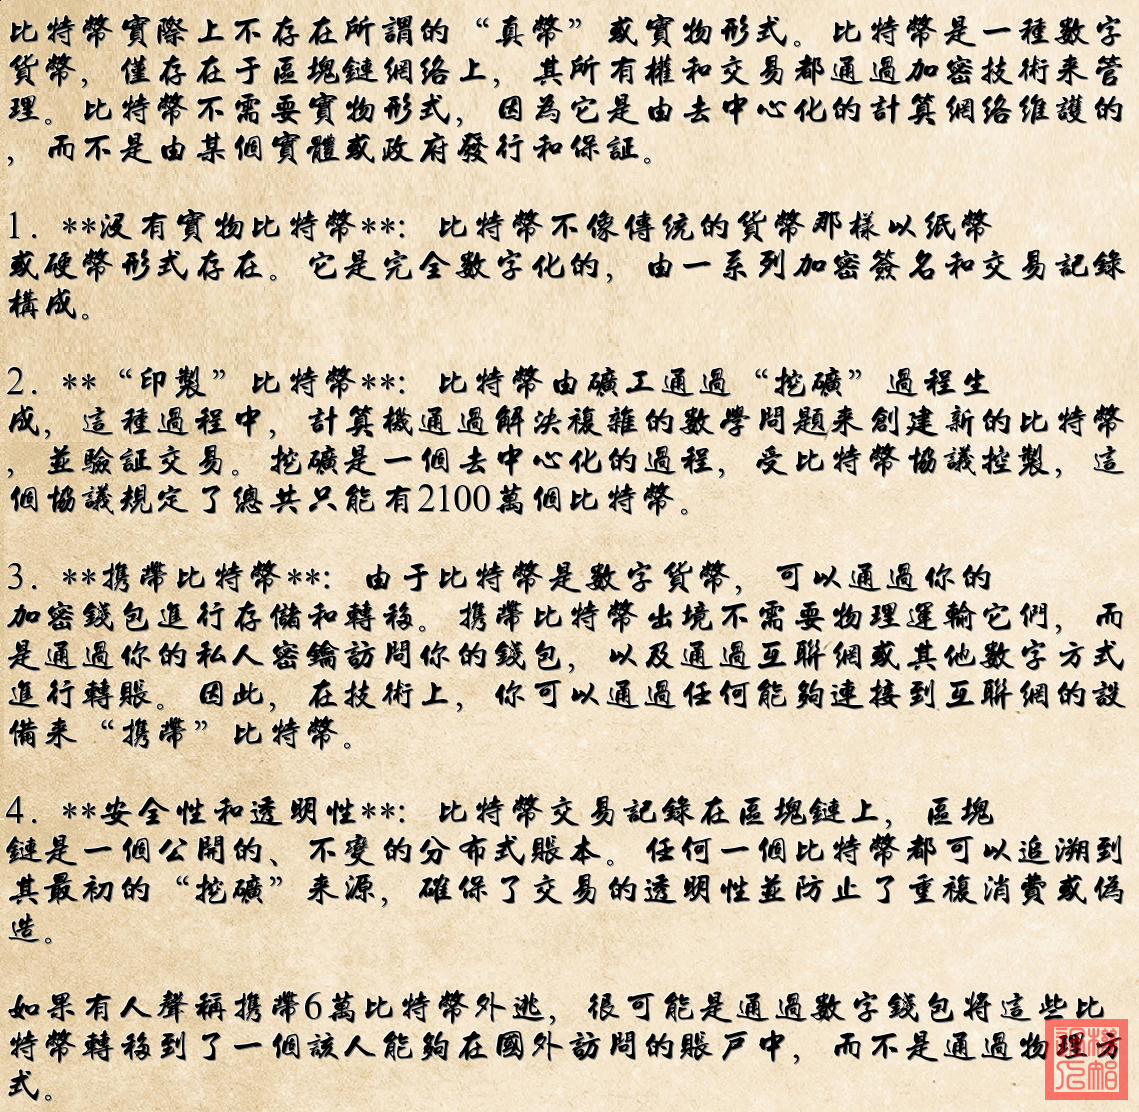 比特幣實際上不存在所謂的“真幣”或實物形式。比特幣是一種數字
貨幣，僅存在于區塊鏈網絡上，其所有權和交易都通過加密技術來管
理。比特幣不需要實物形式，因為它是由去中心化的計算網絡維護的
，而不是由某個實體或政府發行和保証。
1. **沒有實物比特幣**：比特幣不像傳統的貨幣那樣以紙幣
或硬幣形式存在。它是完全數字化的，由一系列加密簽名和交易記錄
構成。
2. **“印製”比特幣**：比特幣由礦工通過“挖礦”過程生
成，這種過程中，計算機通過解決複雜的數學問題來創建新的比特幣
，並驗証交易。挖礦是一個去中心化的過程，受比特幣協議控製，這
個協議規定了總共只能有2100萬個比特幣。
3. **攜帶比特幣**：由于比特幣是數字貨幣，可以通過你的
加密錢包進行存儲和轉移。攜帶比特幣出境不需要物理運輸它們，而
是通過你的私人密鑰訪問你的錢包，以及通過互聯網或其他數字方式
進行轉賬。因此，在技術上，你可以通過任何能夠連接到互聯網的設
備來“攜帶”比特幣。
4. **安全性和透明性**：比特幣交易記錄在區塊鏈上，區塊
鏈是一個公開的、不變的分布式賬本。任何一個比特幣都可以追溯到
其最初的“挖礦”來源，確保了交易的透明性並防止了重複消費或偽
造。
如果有人聲稱攜帶6萬比特幣外逃，很可能是通過數字錢包將這些比
特幣轉移到了一個該人能夠在國外訪問的賬戶中，而不是通過物理方
式。